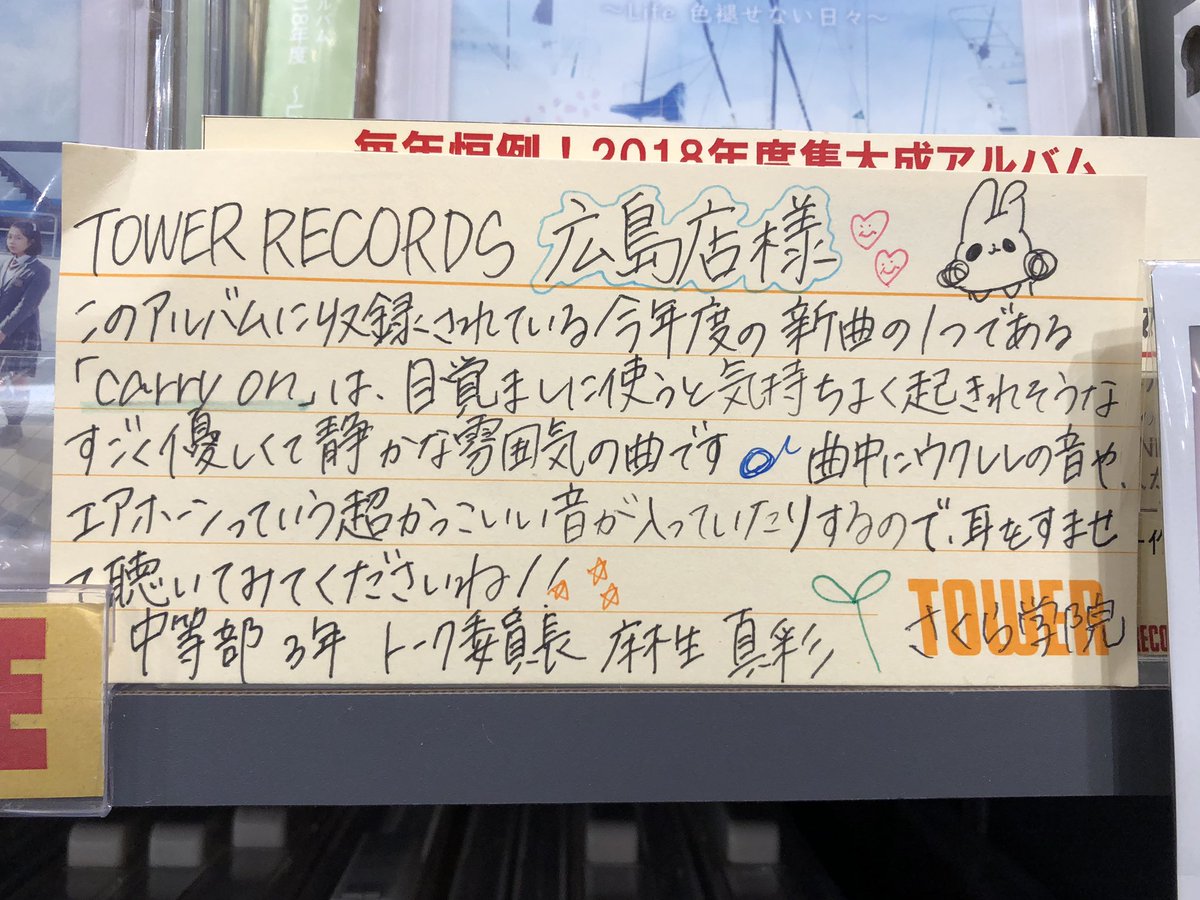 ～Life 色褪せない日々～
毎年恒例！2018年度集大成アルバム
TOWER RECORDS 広島店様
このアルバムに収録されている今年度の新曲の1つである
「carry on」は、目覚ましに使うと気持ちよく起きれそうな
すごく優しくて静かな雰囲気の曲です 曲中にウクレレの音や、
エアホーンっていう超かっこいい音が入っていたりするので、耳をすませ
て聴いてみてくださいね！！
中等部 3年 トーク委員長 麻生 真彩 さくら学院
TOWER